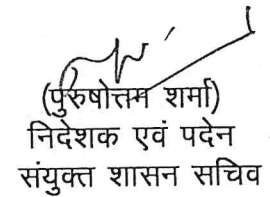 (पुरुषोत्तम शर्मा)
निदेशक एवं पदेन
संयुक्त शासन सचिव